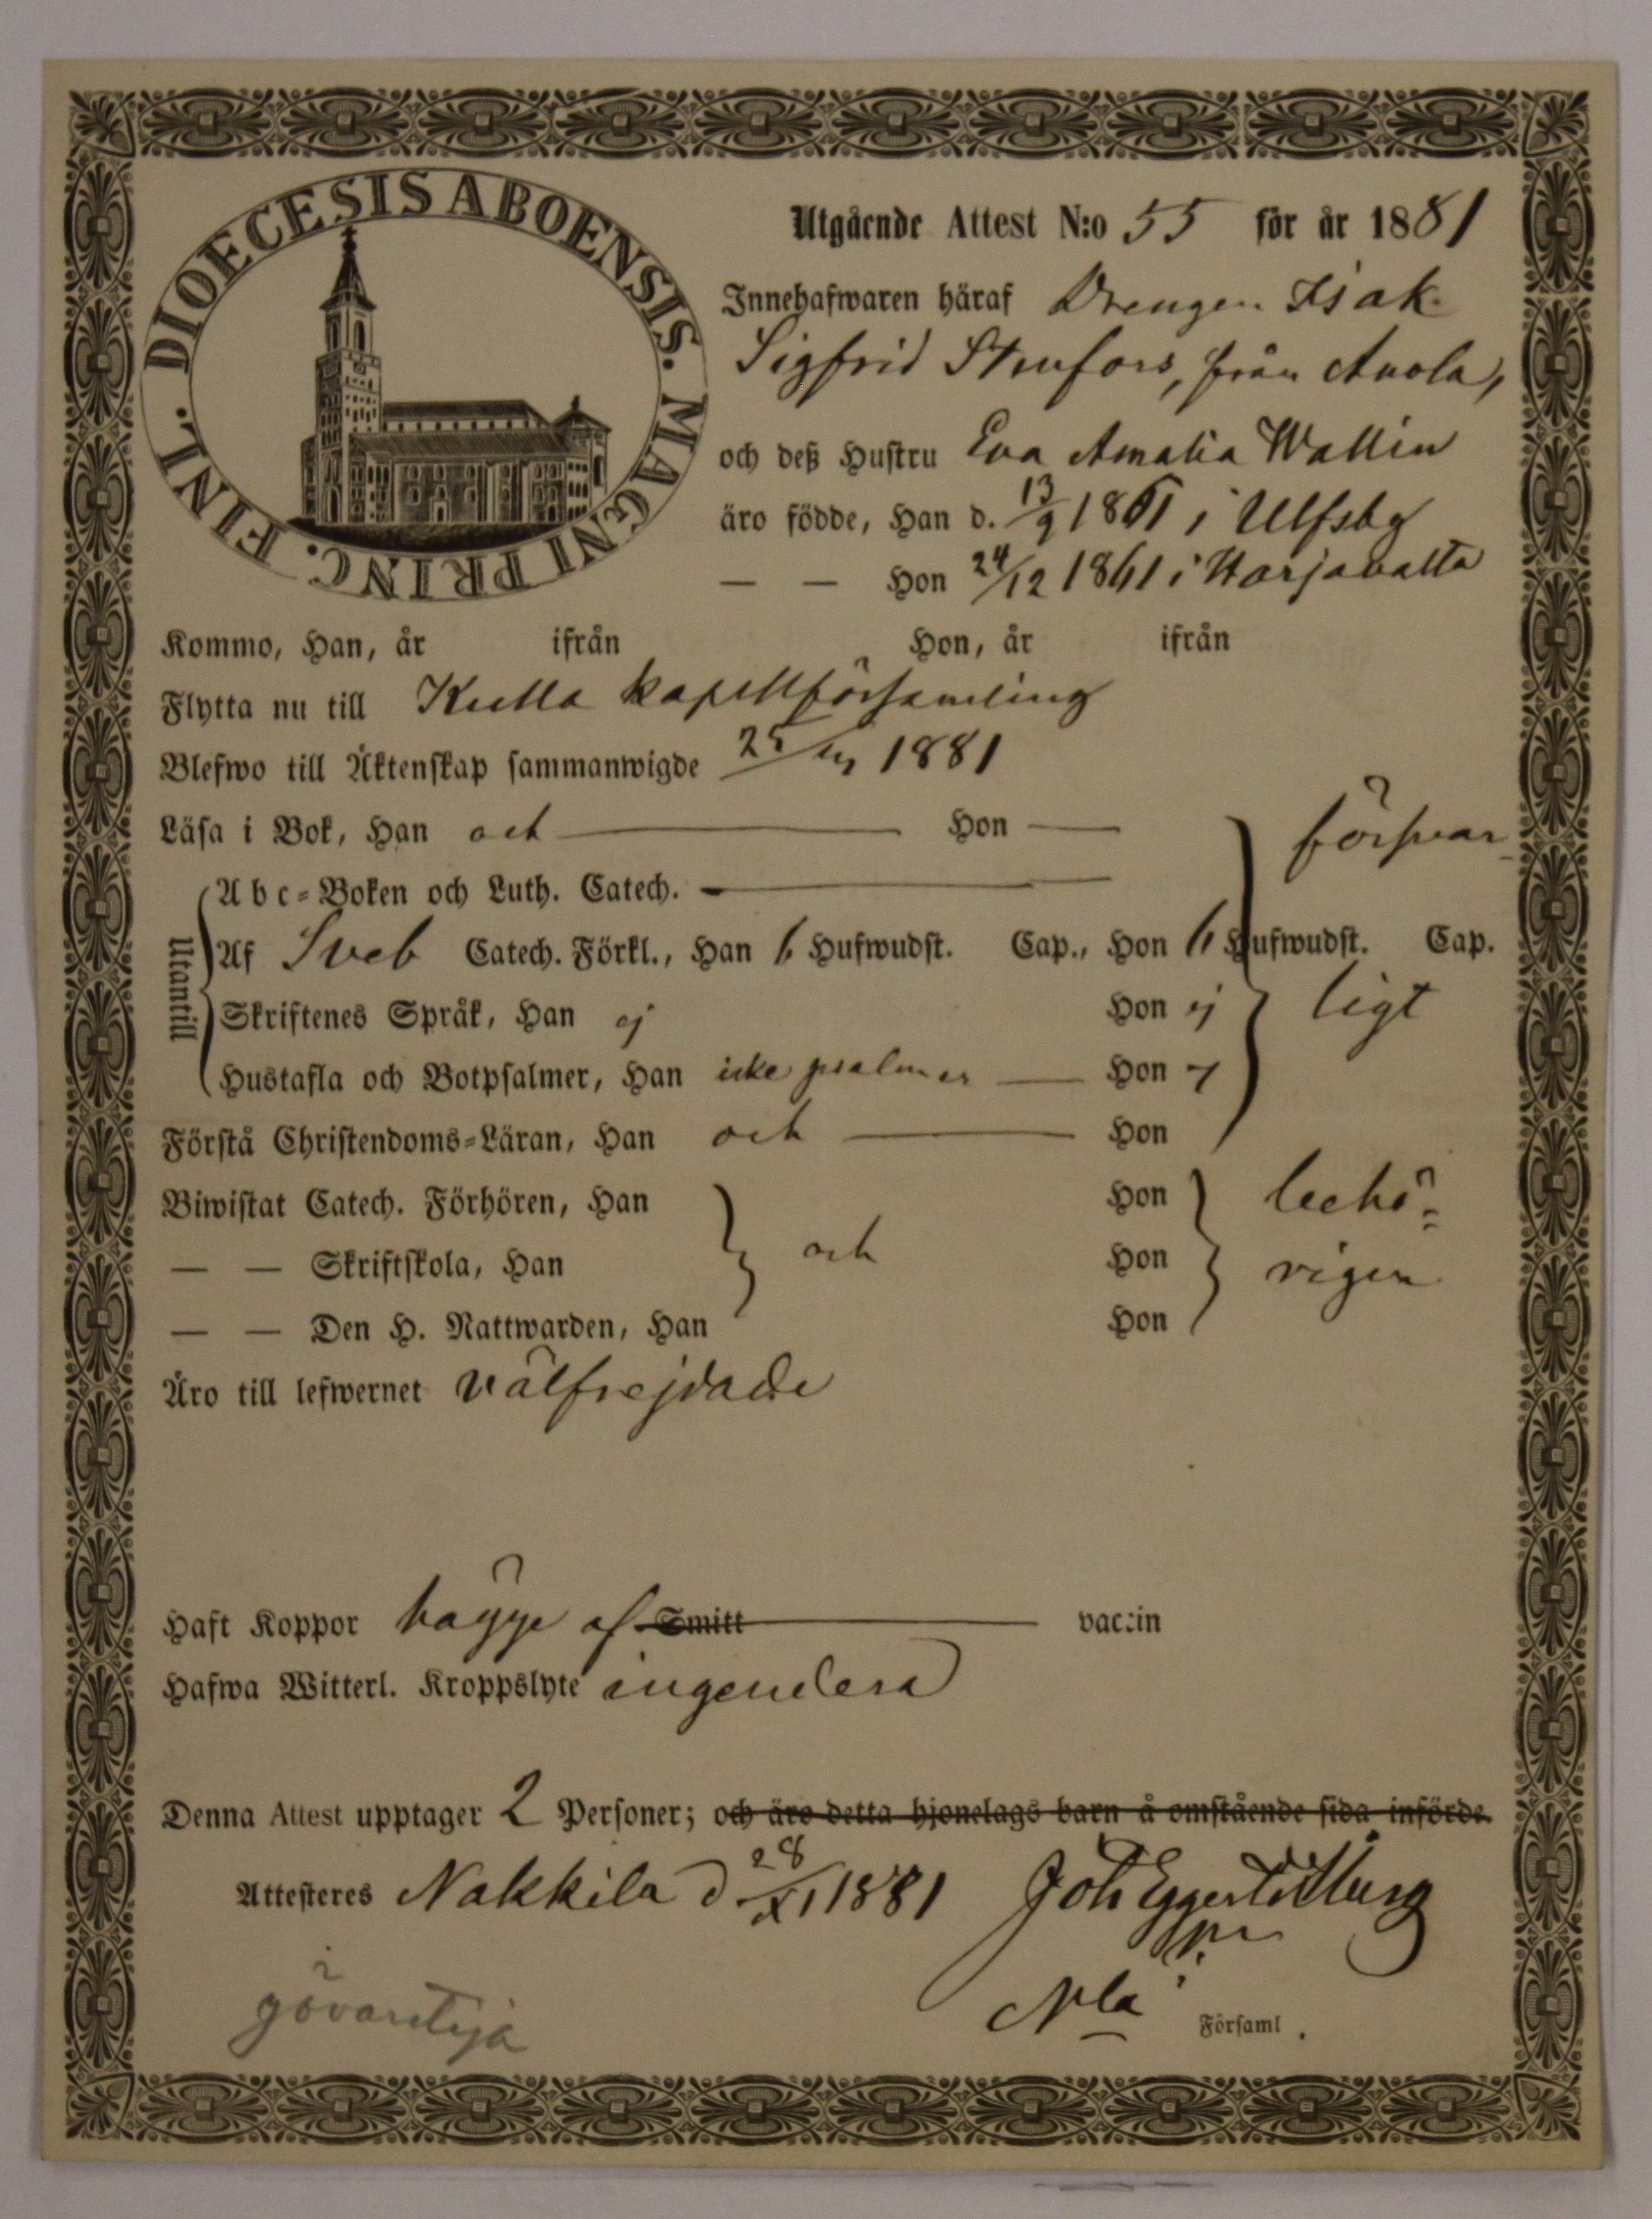 DIOECESIS ABOENSIS. MAGNI PRINC. FINL.
Utgående Attest N:o 55 för år 1881
Innehafwaren häraf Drengen Isak
Sigfrid Stenfors, från Anola,
och deß Hustru Eva Amalia Wallin
äro födde, Han d. 13/9 1861 i Ulfsby
— — Hon 24/12 1861 i Harjavalta
Kommo, Han, år ifrån Hon, år ifrån
Flytta nu till Kulla kapellförsamling
Blefwo till Äktenskap sammanwigde 25/ 1881
Läsa i Bok, Han och — Hon — försvar
Abc-Boken och Luth. Catech. —
Utantill
Af Sveb Catech. Förkl., Han 6 Hufwudst. Cap., Hon 6 Hufwudst. Cap.
Skriftenes Språk, Han ej Hon ej ligt
Hustafla och Botpsalmer, Han icke psalmer — Hon
Förstå Christendoms-Läran, Han och — Hon
Biwistat Catech. Förhören, Han Hon behö-
— — Skriftskola, Han och Hon rigen
— — Den H. Nattwarden, Han Hon
Äro till lefwernet välfrejdade
Haft Koppor bägge af Smitt vaccin
Hafwa Witterl. Kroppslyte ingendera
Denna Attest upptager 2 Personer; och äro detta hjonelags barn å omstående sida införde.
Attesteres Nakkila d 28/XI 1881 Joh Eggert
Nla Församl.